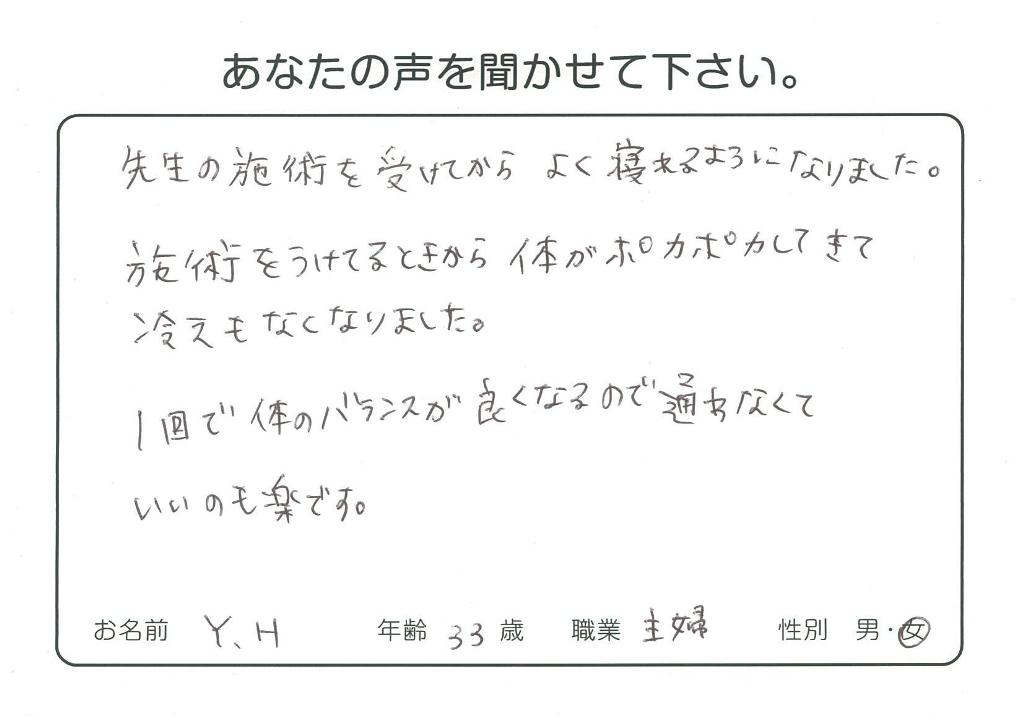 あなたの声を聞かせて下さい。
先生の施術を受けてから よく寝れるようになりました。
施術をうけてるときから 体がポカポカしてきて
冷えもなくなりました。
1回で体のバランスが良くなるので通わなくて
いいのも楽です。
お名前 Y、H 年齢 33 歳 職業 主婦 性別 男・女